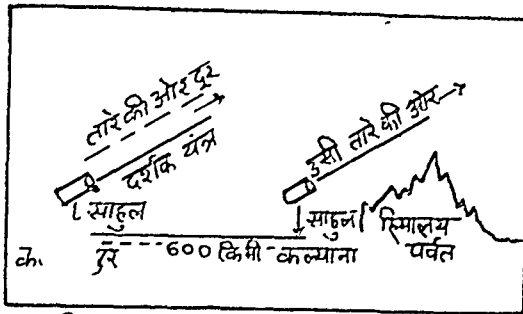 तारे की ओर दूर
दर्शक यंत्र
उसी तारे की ओर
साहुल
साहुल
हिमालय
पर्वत
क. दूर 600 किमी कल्याना